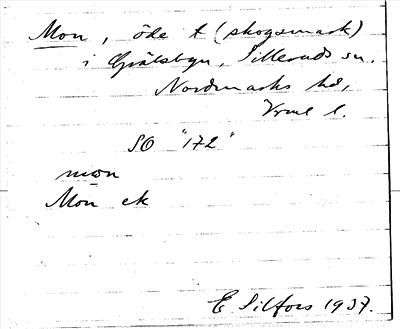 Mon, öde t (skogsmark)
i Grälsbyn, Silleruds sn.
Nordmarks hd,
Vrml l.
SO "172"
mon
Mon ek
E Silfors 1937.